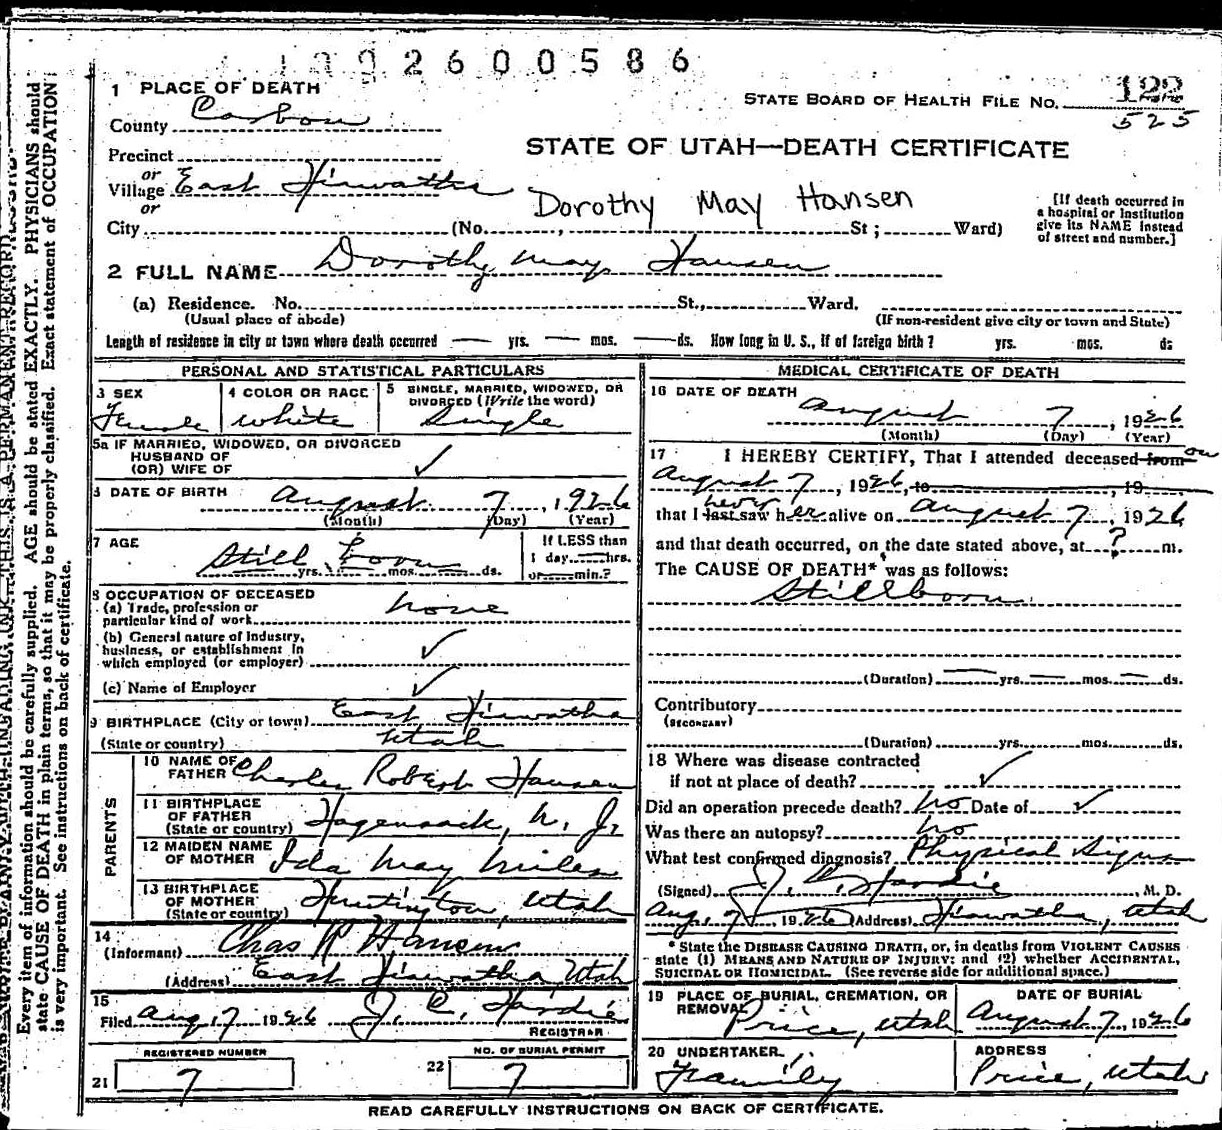 1992600586
1 PLACE OF DEATH
STATE BOARD OF HEALTH FILE NO. 122
525
County Carbon
STATE OF UTAH—DEATH CERTIFICATE
Precinct
or
Village East Hiawatha
or
Dorothy May Hansen
[If death occurred in a hospital or institution give its NAME instead of street and number.]
City (No. , St; Ward)
2 FULL NAME Dorothy May Hansen
(a) Residence. No. St., Ward.
(Usual place of abode) (If non-resident give city or town and State)
Length of residence in city or town where death occurred — yrs. — mos. — ds. How long in U. S., if of foreign birth? yrs. mos. ds
PERSONAL AND STATISTICAL PARTICULARS
3 SEX
Female
4 COLOR OR RACE
white
5 SINGLE, MARRIED, WIDOWED, OR
DIVORCED (Write the word)
Single
5a IF MARRIED, WIDOWED, OR DIVORCED
HUSBAND OF
(OR) WIFE OF ✓
6 DATE OF BIRTH August 7, 1926
(Month) (Day) (Year)
7 AGE
Still Born
yrs. mos. ds.
If LESS than
1 day — hrs.
or — min.?
8 OCCUPATION OF DECEASED
(a) Trade, profession or
particular kind of work none
(b) General nature of Industry,
business, or establishment in
which employed (or employer) ✓
(c) Name of Employer ✓
9 BIRTHPLACE (City or town) East Hiawatha
(State or country) Utah
PARENTS
10 NAME OF
FATHER Charles Robert Hansen
11 BIRTHPLACE
OF FATHER
(State or country) Hagensack, N. J.
12 MAIDEN NAME
OF MOTHER Ida May Miles
13 BIRTHPLACE
OF MOTHER
(State or country) Huntington Utah
14
(Informant) Chas R Hansen
(Address) East Hiawatha Utah
15
Filed Aug 7 1926 J. C. Hardie
REGISTRAR
REGISTERED NUMBER
21 7
NO. OF BURIAL PERMIT
22 7
MEDICAL CERTIFICATE OF DEATH
16 DATE OF DEATH
August 7, 1926
(Month) (Day) (Year)
17 I HEREBY CERTIFY, That I attended deceased from on
August 7, 1926, to , 19
that I last never saw her alive on August 7, 1926
and that death occurred, on the date stated above, at ? m.
The CAUSE OF DEATH* was as follows:
Stillborn
(Duration) — yrs. — mos. — ds.
Contributory
(SECONDARY)
(Duration) yrs. mos. ds.
18 Where was disease contracted
if not at place of death? ✓
Did an operation precede death? No Date of ✓
Was there an autopsy? No
What test confirmed diagnosis? Physical Signs
(Signed) J. C. Hardie M. D.
Aug. 7, 1926 (Address) Hiawatha, Utah
* State the DISEASE CAUSING DEATH, or, in deaths from VIOLENT CAUSES
state (1) MEANS AND NATURE OF INJURY; and (2) whether ACCIDENTAL,
SUICIDAL OR HOMICIDAL. (See reverse side for additional space.)
19 PLACE OF BURIAL, CREMATION, OR
REMOVAL
Price, Utah
DATE OF BURIAL
August 7, 1926
20 UNDERTAKER
Family
ADDRESS
Price, Utah
READ CAREFULLY INSTRUCTIONS ON BACK OF CERTIFICATE.
Every item of information should be carefully supplied. AGE should be stated EXACTLY. PHYSICIANS should
state CAUSE OF DEATH in plain terms, so that it may be properly classified. Exact statement of OCCUPATION
is very important. See instructions on back of certificate.